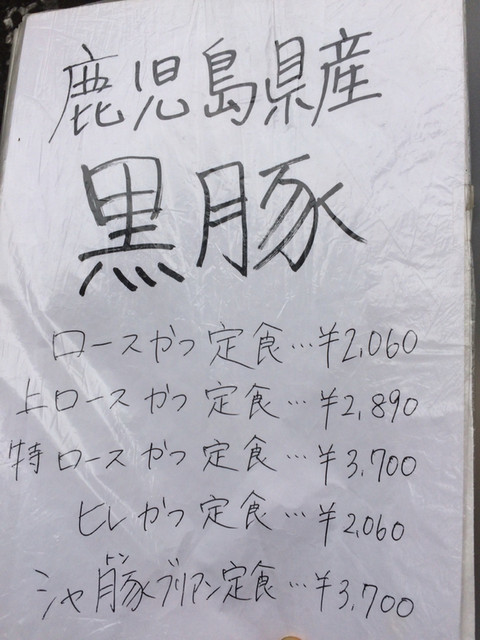 鹿児島県産
黒豚
ロースかつ定食…¥2,060
上ロースかつ定食…¥2,890
特ロースかつ定食…¥3,700
ヒレかつ定食…¥2,060
シャ豚ブリアン定食…¥3,700
トン